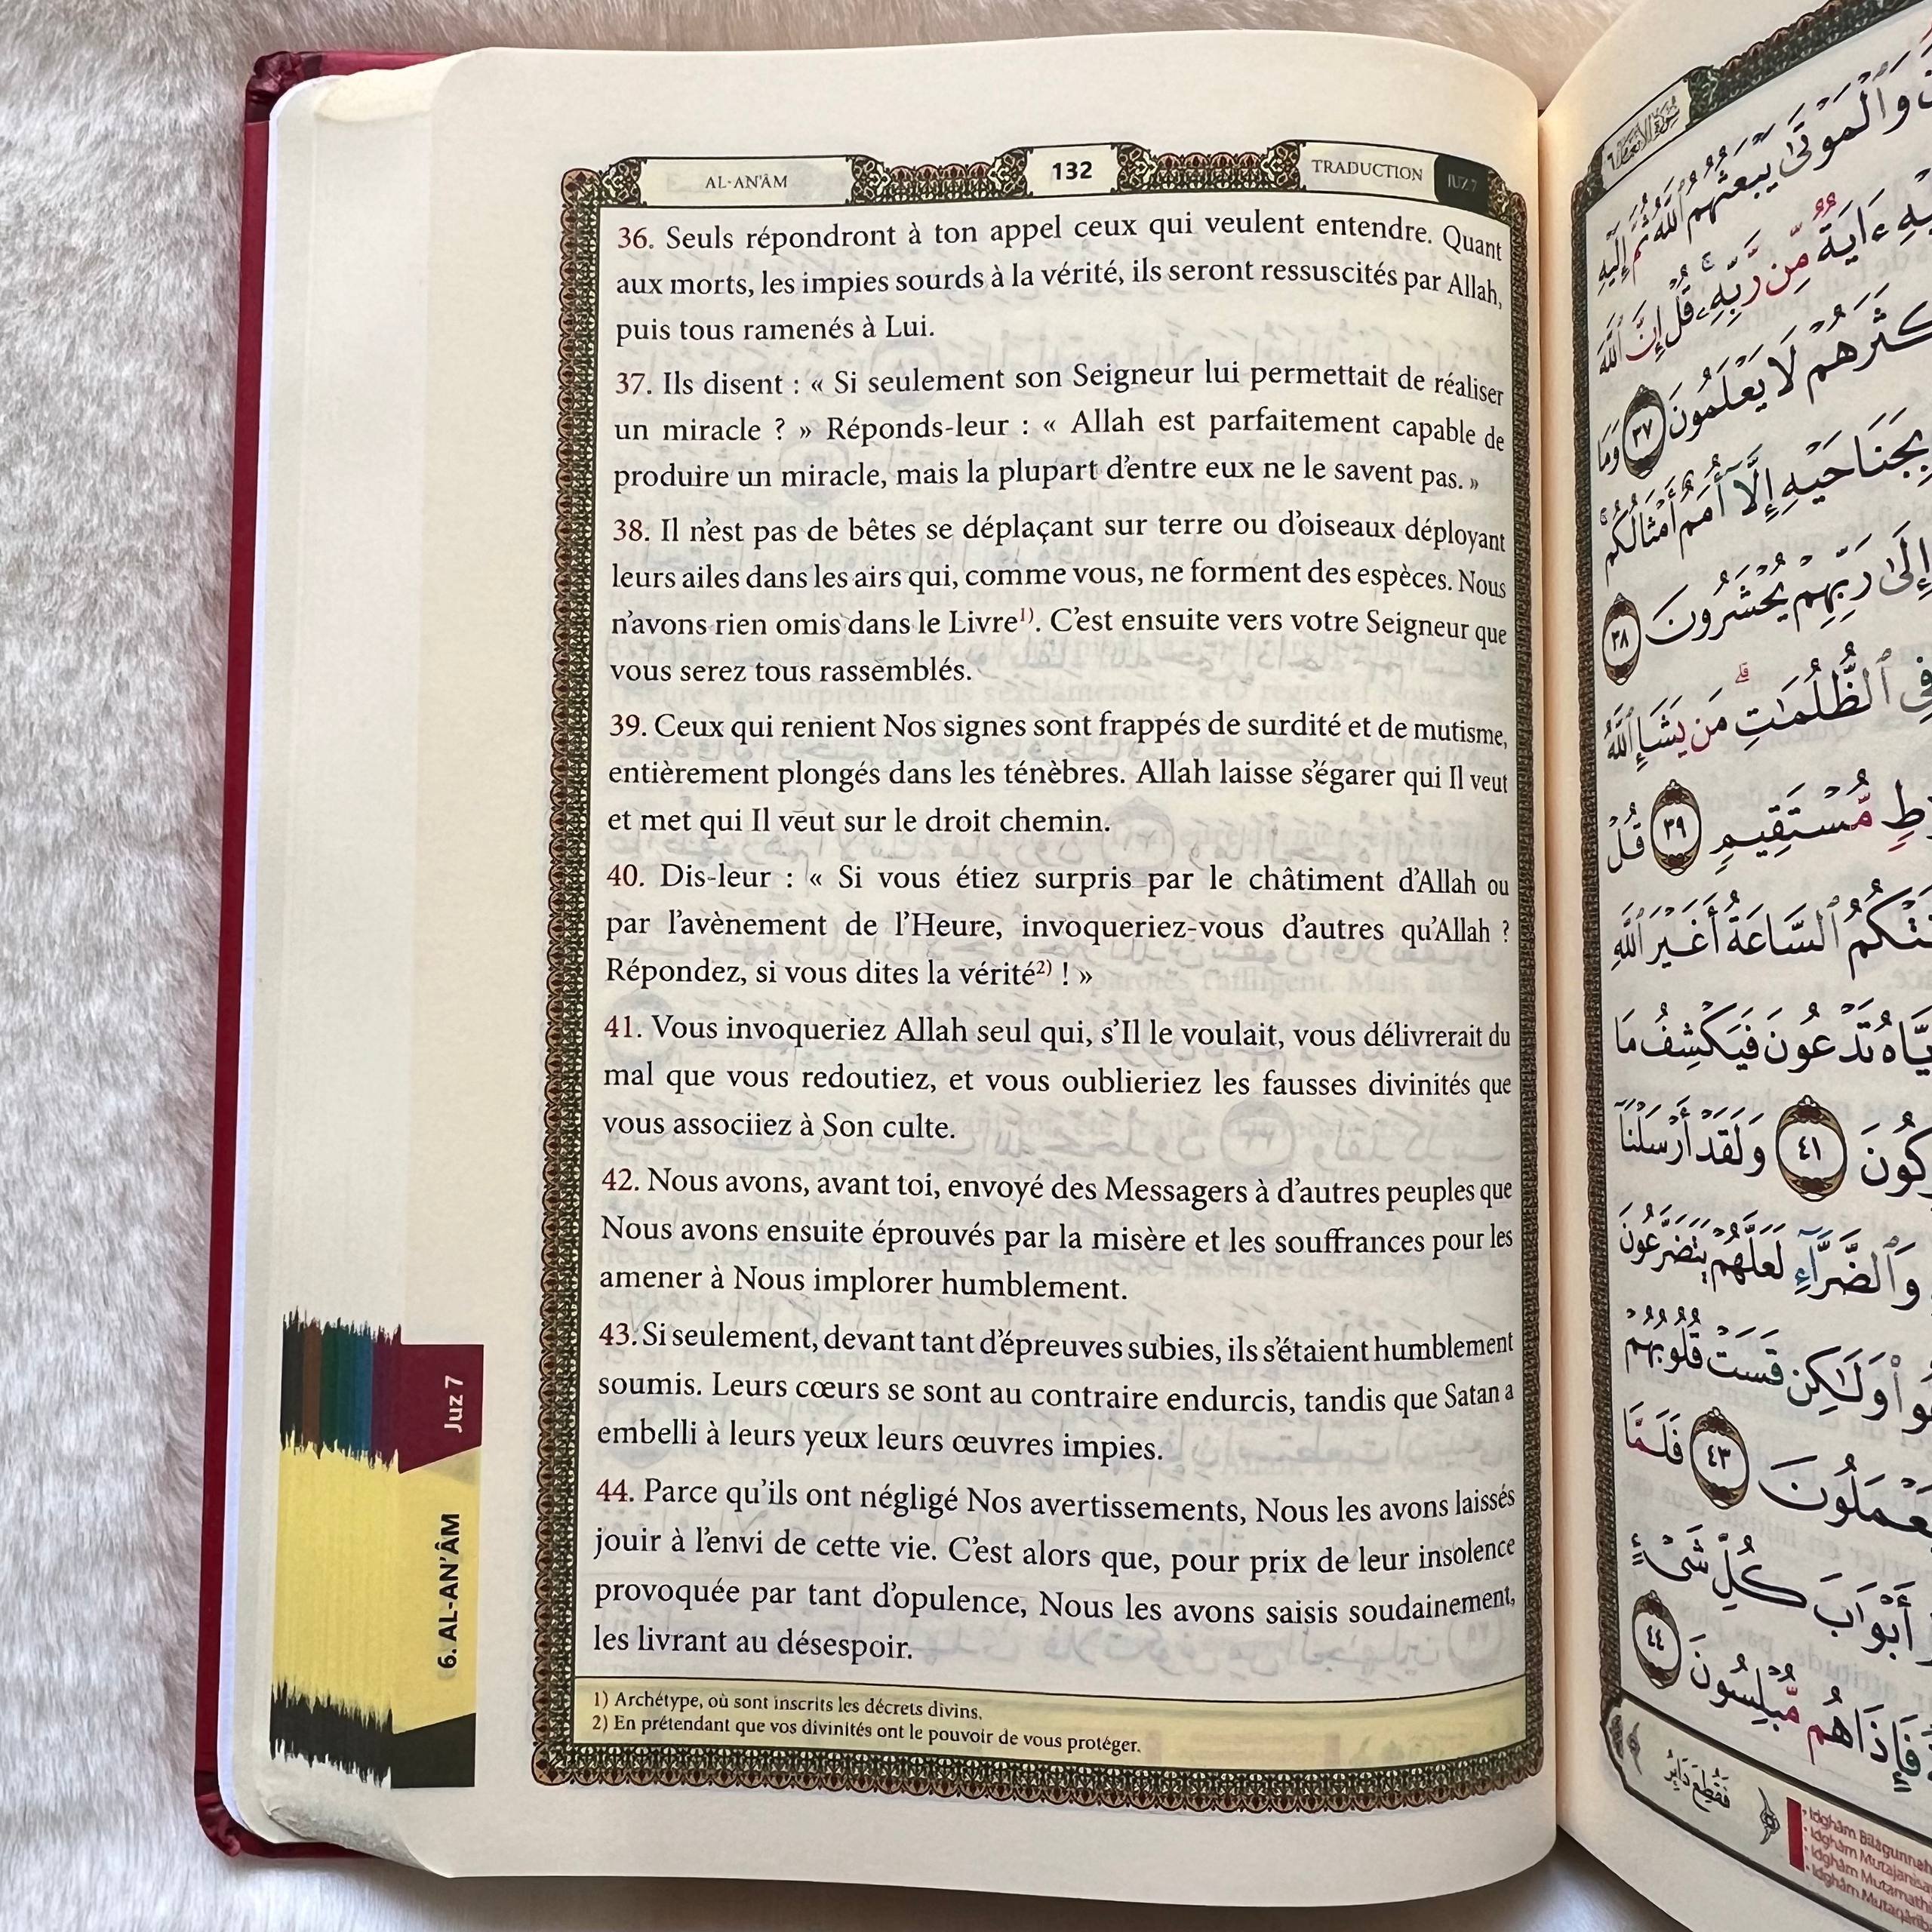 AL-AN'ÂM
132
TRADUCTION
JUZ 7
36. Seuls répondront à ton appel ceux qui veulent entendre. Quant
aux morts, les impies sourds à la vérité, ils seront ressuscités par Allah,
puis tous ramenés à Lui.
37. Ils disent : « Si seulement son Seigneur lui permettait de réaliser
un miracle ? » Réponds-leur : « Allah est parfaitement capable de
produire un miracle, mais la plupart d'entre eux ne le savent pas. »
38. Il n'est pas de bêtes se déplaçant sur terre ou d'oiseaux déployant
leurs ailes dans les airs qui, comme vous, ne forment des espèces. Nous
n'avons rien omis dans le Livre1). C'est ensuite vers votre Seigneur que
vous serez tous rassemblés.
39. Ceux qui renient Nos signes sont frappés de surdité et de mutisme,
entièrement plongés dans les ténèbres. Allah laisse s'égarer qui Il veut
et met qui Il veut sur le droit chemin.
40. Dis-leur : « Si vous étiez surpris par le châtiment d'Allah ou
par l'avènement de l'Heure, invoqueriez-vous d'autres qu'Allah ?
Répondez, si vous dites la vérité2) ! »
41. Vous invoqueriez Allah seul qui, s'Il le voulait, vous délivrerait du
mal que vous redoutiez, et vous oublieriez les fausses divinités que
vous associiez à Son culte.
42. Nous avons, avant toi, envoyé des Messagers à d'autres peuples que
Nous avons ensuite éprouvés par la misère et les souffrances pour les
amener à Nous implorer humblement.
43. Si seulement, devant tant d'épreuves subies, ils s'étaient humblement
soumis. Leurs cœurs se sont au contraire endurcis, tandis que Satan a
embelli à leurs yeux leurs œuvres impies.
44. Parce qu'ils ont négligé Nos avertissements, Nous les avons laissés
jouir à l'envi de cette vie. C'est alors que, pour prix de leur insolence
provoquée par tant d'opulence, Nous les avons saisis soudainement,
les livrant au désespoir.
1) Archétype, où sont inscrits les décrets divins.
2) En prétendant que vos divinités ont le pouvoir de vous protéger.
Juz 7
6. AL-AN'ÂM
وَٱلْمَوْتَىٰ يَبْعَثُهُمُ ٱللَّهُ ثُمَّ إِلَيْهِ
ءَايَةٌ مِّن رَّبِّهِۦ ۚ قُلْ إِنَّ ٱللَّهَ
لَا يَعْلَمُونَ ٣٧ وَمَا
بِجَنَاحَيْهِ إِلَّآ أُمَمٌ أَمْثَالُكُم ۚ
إِلَىٰ رَبِّهِمْ يُحْشَرُونَ ٣٨
ٱلظُّلُمَٰتِ ۗ مَن يَشَإِ ٱللَّهُ
مُّسْتَقِيمٍ ٣٩ قُلْ
ٱلسَّاعَةُ أَغَيْرَ ٱللَّهِ
تَدْعُونَ فَيَكْشِفُ مَا
٤١ وَلَقَدْ أَرْسَلْنَآ
وَٱلضَّرَّآءِ لَعَلَّهُمْ يَتَضَرَّعُونَ
وَلَٰكِن قَسَتْ قُلُوبُهُمْ
٤٣ فَلَمَّا
أَبْوَٰبَ كُلِّ شَىْءٍ
فَإِذَا هُم مُّبْلِسُونَ ٤٤
فَقُطِعَ دَابِرُ
• Idghâm Bilâgunnah
• Idghâm Mutajanisa
• Idghâm Mutamath
• Idghâm Mutaqârib